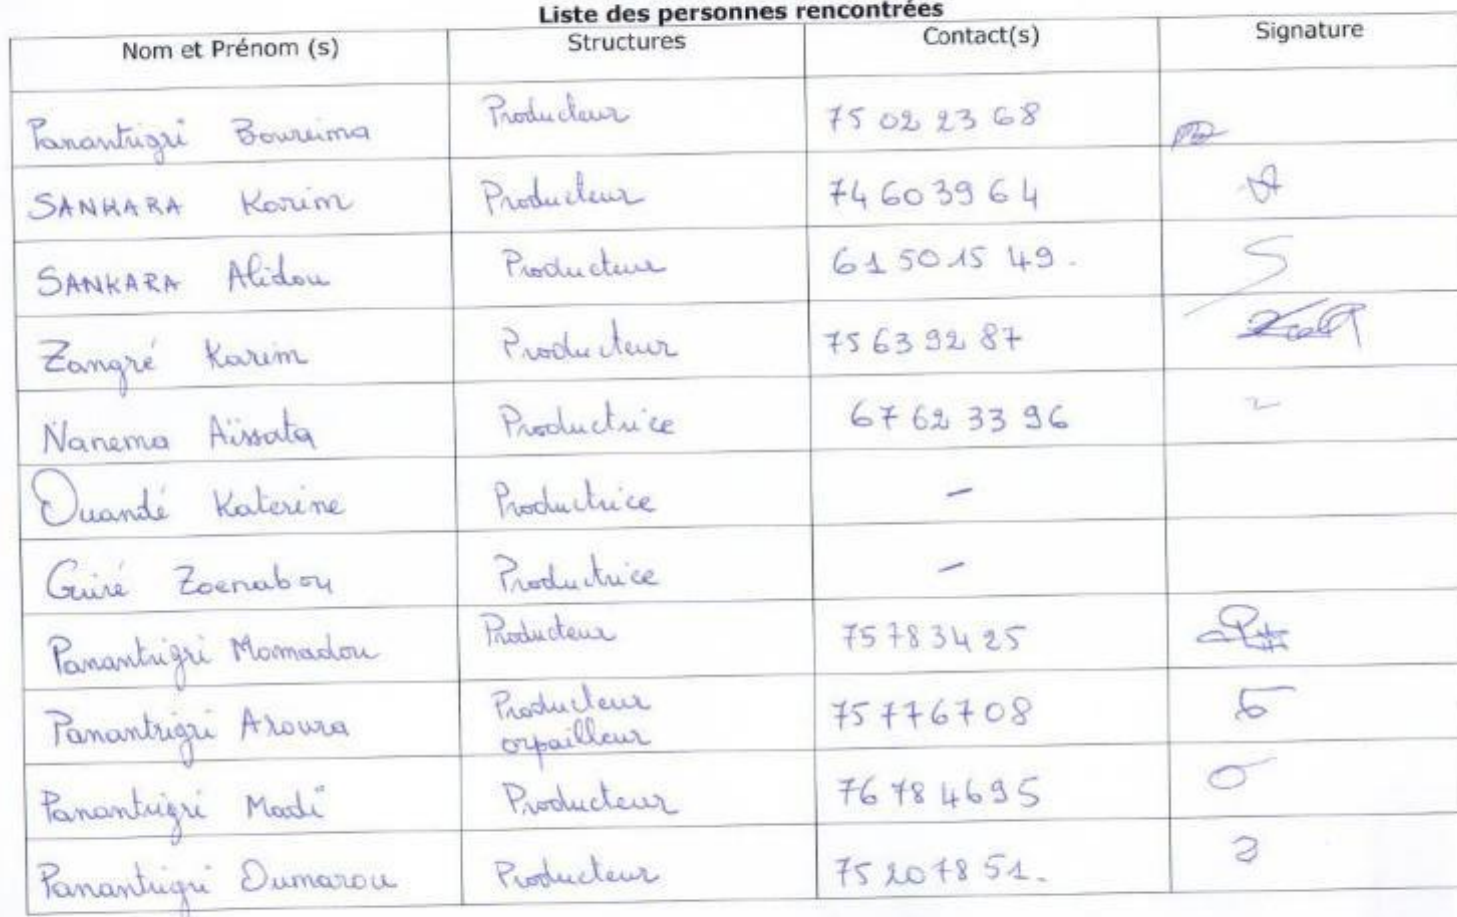 Liste des personnes rencontrées
Nom et Prénom (s) Structures Contact(s) Signature
Panantrigri Boureima Producteur 75 02 23 68
SANKARA Karim Producteur 74 60 39 64
SANKARA Alidou Producteur 61 50 15 49.
Zangré Karim Producteur 75 63 92 87
Nanema Aïssata Productrice 67 62 33 96
Ouandé Katerine Productrice -
Guiré Zoenabou Productrice -
Panantrigri Momadou Producteur 75 78 34 25
Panantrigri Aroura Producteur orpailleur 75 77 67 08
Panantrigri Madi Producteur 76 78 46 95
Panantrigri Oumarou Producteur 75 20 78 51.